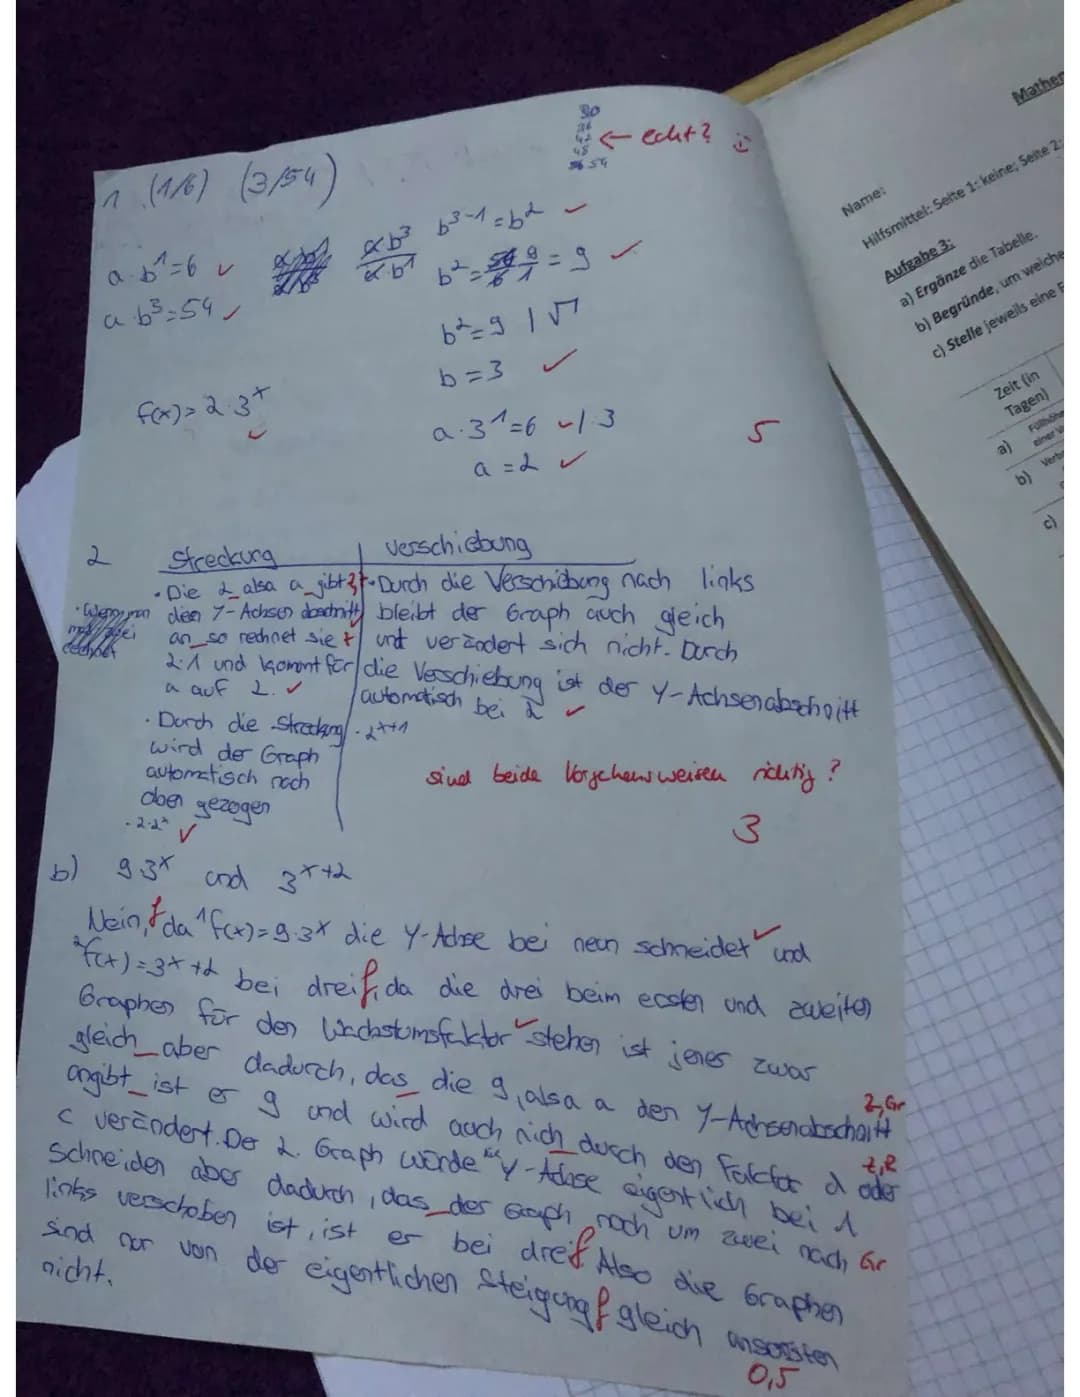 30
36
42
48
54
← echt? :)
1. (1/6) (3/54)
a · b¹ = 6 ✓
a · b³ = 54 ✓
a·b³ / a·b¹
b³⁻¹ = b² ✓
b² = 54/6 9/1 = 9 ✓
b² = 9 | √
b = 3 ✓
f(x) = 2·3ˣ ✓
a · 3¹ = 6 ✓ | : 3
a = 2 ✓
5
2 Streckung | Verschiebung
· Die 2 also a gibt
den Y-Achsenabschnitt
an so rechnet sie
2·1 und kommt für
a auf 2. ✓
· Durch die Streckung
wird der Graph
automatisch nach
oben gezogen
· 2·2ˣ ✓
· Durch die Verschiebung nach links
bleibt der Graph auch gleich
und verändert sich nicht. Durch
die Verschiebung ist der Y-Achsenabschnitt
automatisch bei 2 ✓
· 2ˣ⁺¹
sind beide Vorgehensweisen richtig?
3
b) 9·3ˣ und 3ˣ⁺²
Nein, f da ¹f(x)=9·3ˣ die Y-Achse bei neun schneidet ✓ und
²f(x)=3ˣ⁺² bei drei f, da die drei beim ersten und zweiten
Graphen für den Wachstumsfaktor ✓ stehen ist jener zwar
gleich aber dadurch, das die 9, also a den Y-Achsenabschnitt
Z, Gr
angibt ist er 9 und wird auch nich durch den Faktor d oder
Z, R
c verändert. Der 2. Graph würde die Y-Achse eigentlich bei 1
schneiden aber dadurch, das der Graph noch um zwei nach
Gr
links verschoben ist, ist er bei drei f. Also die Graphen
sind nur von der eigentlichen Steigung f gleich ansonsten
nicht.
0,5
Mathem
Name:
Hilfsmittel: Seite 1: keine; Seite 2:
Aufgabe 3:
a) Ergänze die Tabelle.
b) Begründe, um welche
c) Stelle jeweils eine F
Zeit (in
Tagen)
a) Füllhöhe
einer
b)
c)